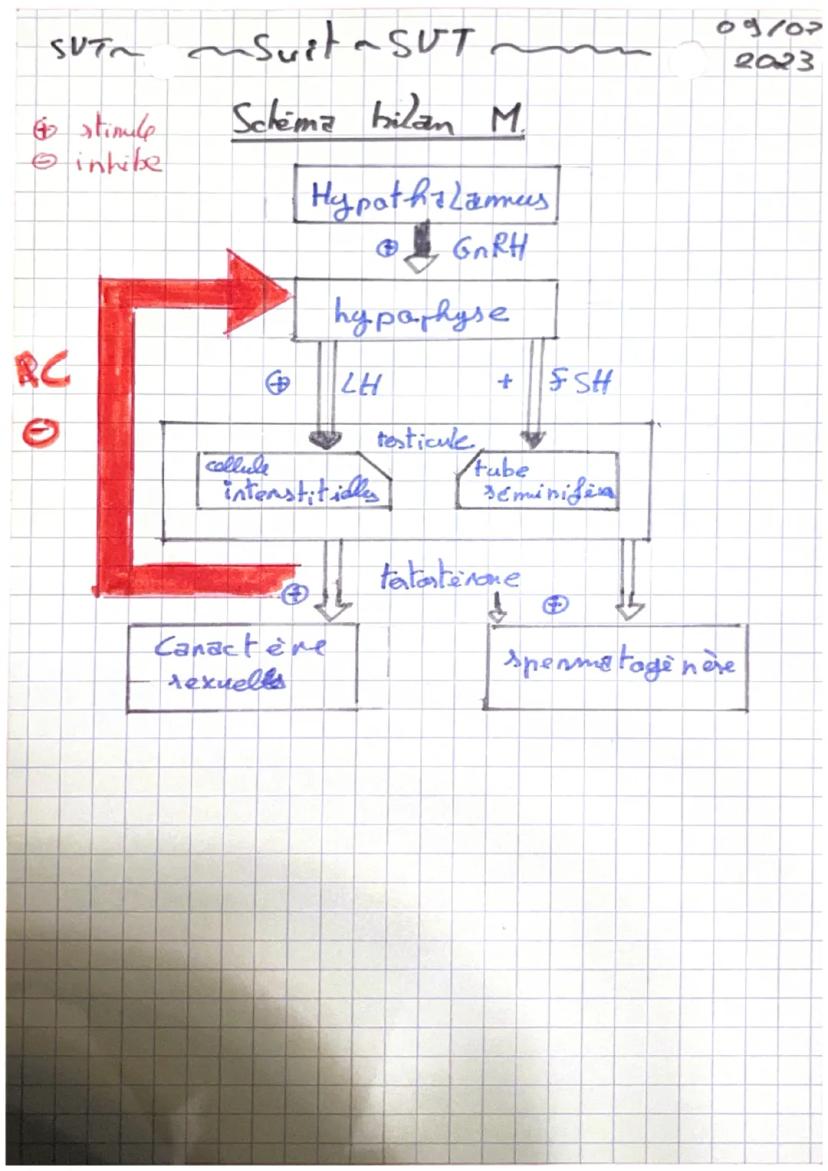 SVT Suit SVT 09/02
2023
⊕ stimule
⊖ inhibe
Schéma bilan M.
Hypothalamus
⊕ GnRH
hypophyse
RC
⊖
⊕ LH + FSH
testicule
cellule
interstitielles
tube
séminifère
testostérone
⊕ ⊕
Caractère
sexuelles
spermatogénèse